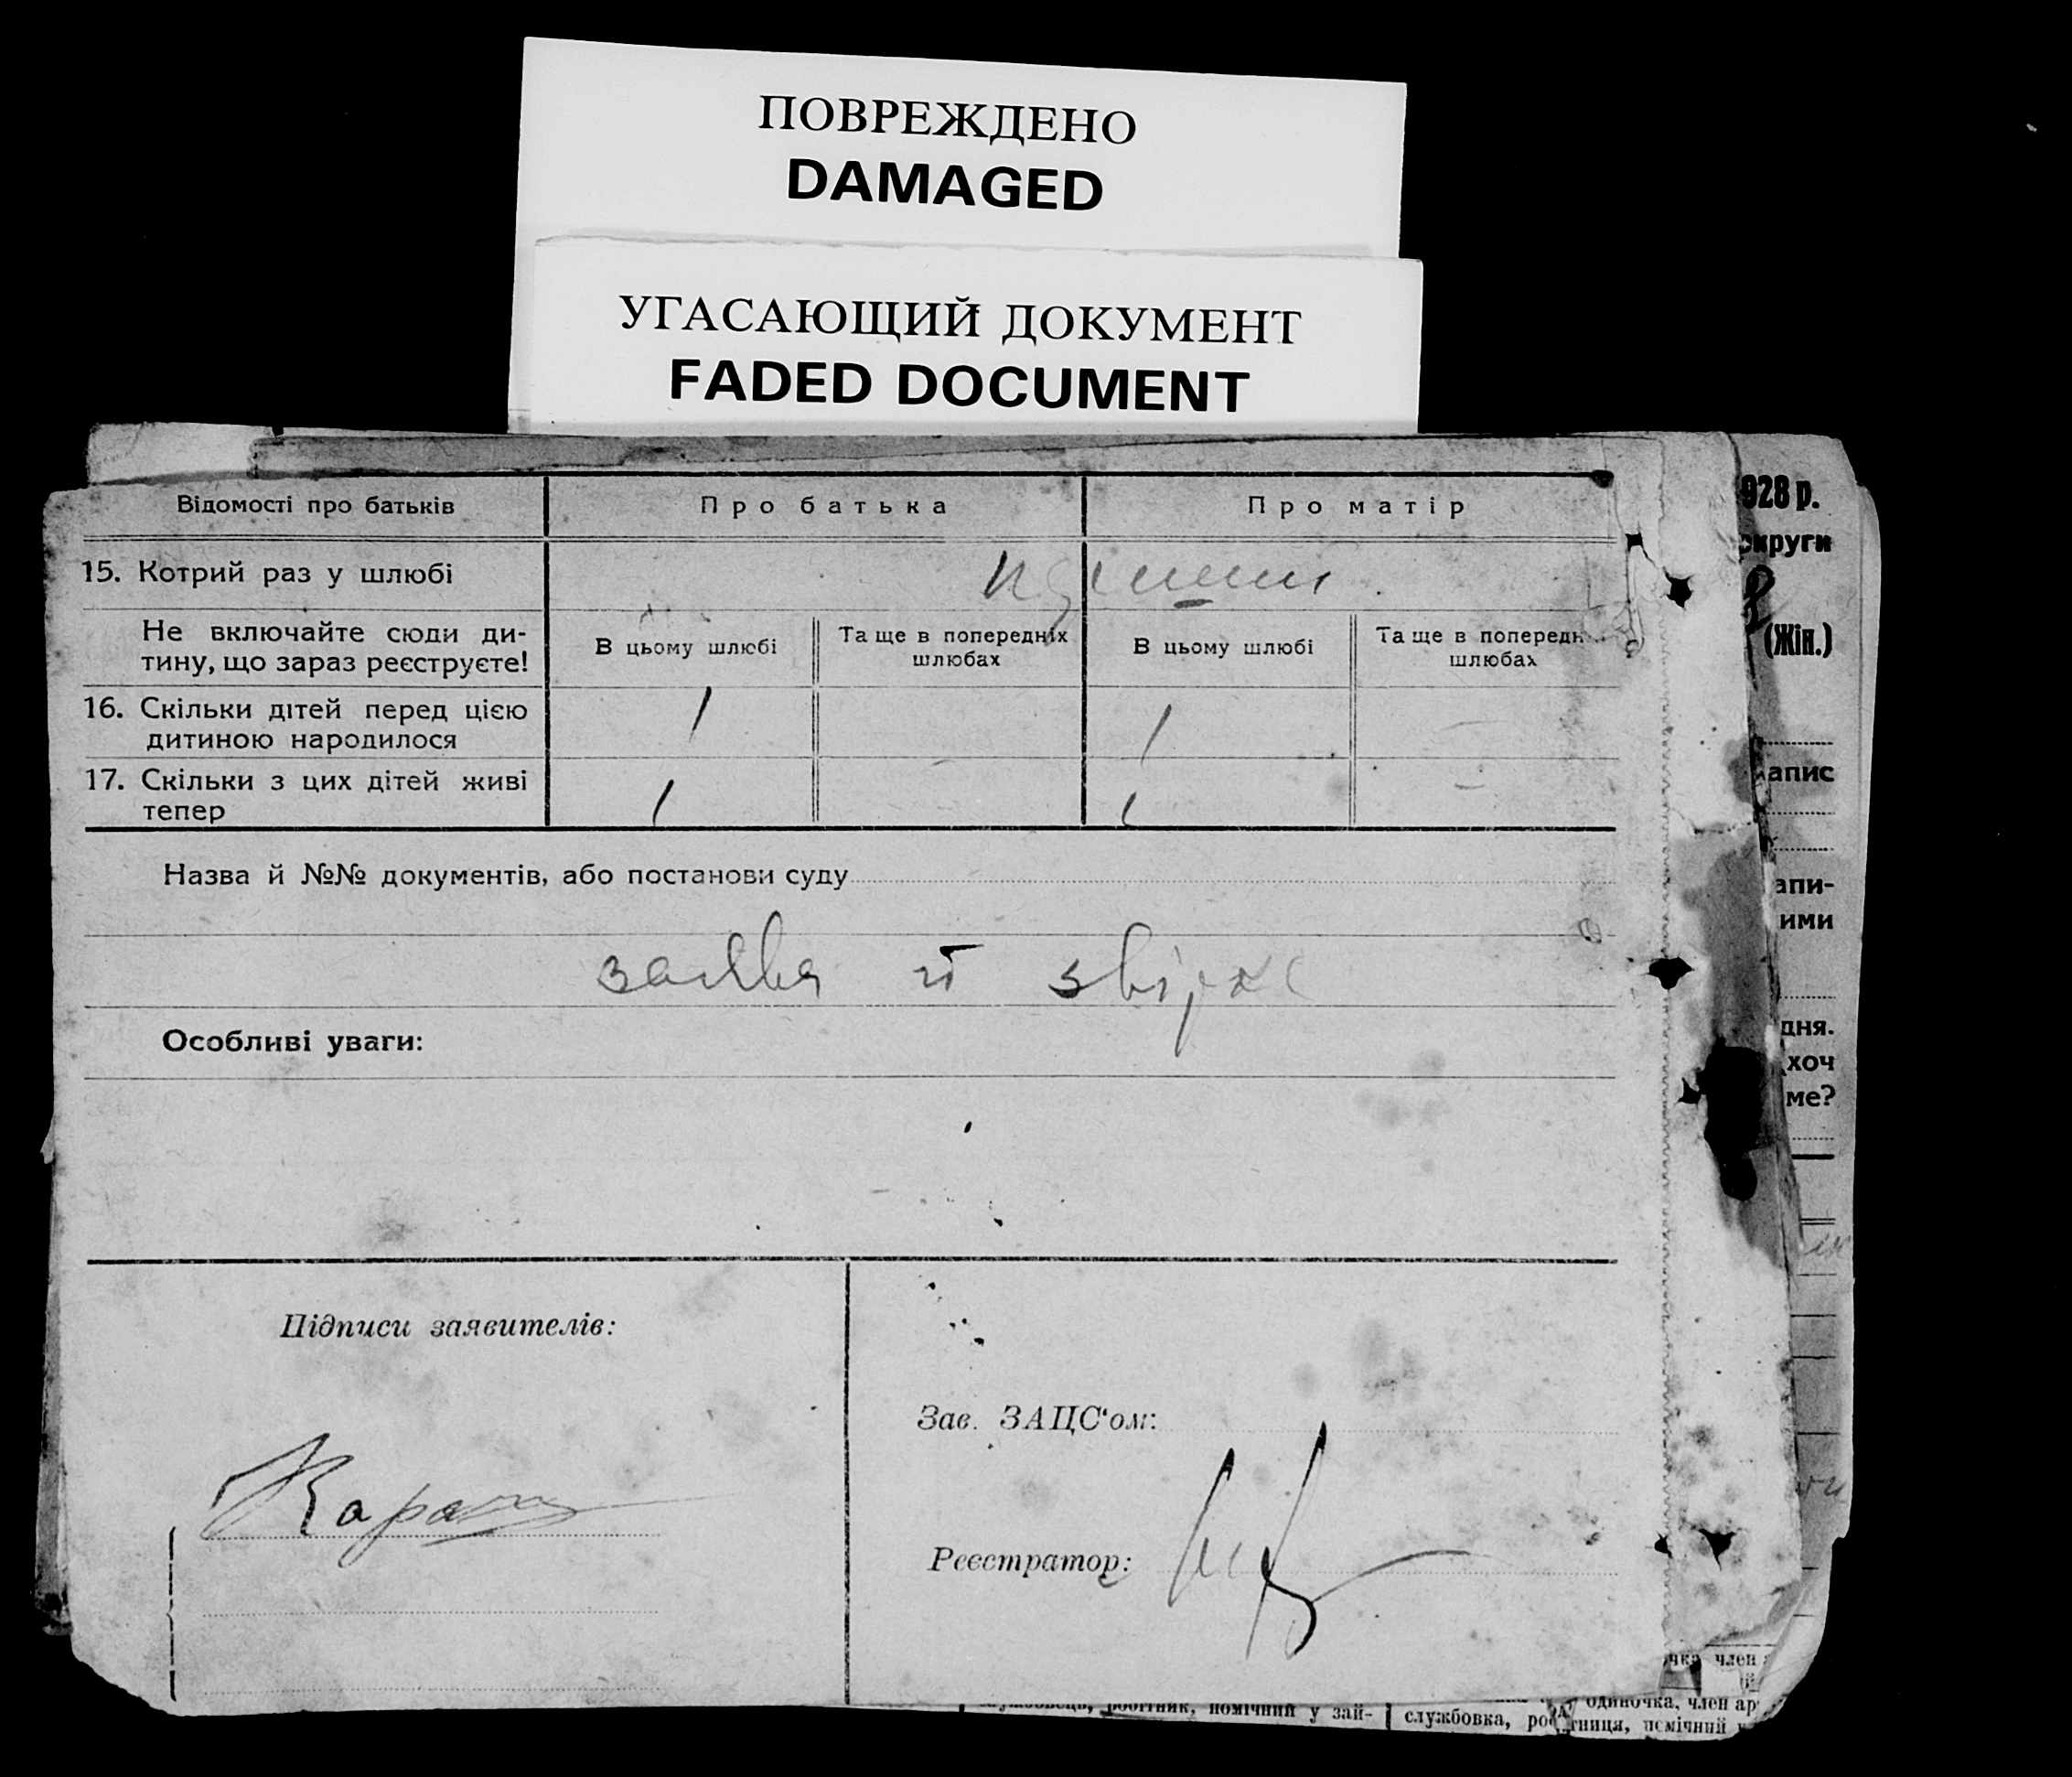 ПОВРЕЖДЕНО
DAMAGED
УГАСАЮЩИЙ ДОКУМЕНТ
FADED DOCUMENT
Відомості про батьків
Про батька
Про матір
15. Котрий раз у шлюбі
Не включайте сюди ди-
тину, що зараз реєструєте!
В цьому шлюбі
Та ще в попередніх
шлюбах
В цьому шлюбі
Та ще в попередн
шлюбах
16. Скільки дітей перед цією
дитиною народилося
1
1
—
17. Скільки з цих дітей живі
тепер
1
1
—
Назва й №№ документів, або постанови суду
заява й
Особливі уваги:
Підписи заявителів:
Зав. ЗАЦС‘ом:
Реєстратор:
928 р.
округи
(Жін.)
апис
апи-
ими
дня.
хоч
ме?
чка, член
службовець, робітник, помічний у зай-
одиночка, член ар
службовка, робітниця, помічний